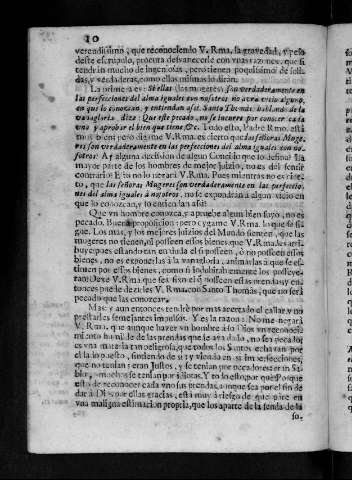 10
verendissimo, que reconociendo V. Rma. la gravedad, y peso
deste escrupulo, procura desvanecerle con unas razones, que si
tendrán mucho de ingeniosas, pero tienen poquissimo de soli-
das, y verdaderas, como ellas mismas lo dirán.
La primera es: Si ellas (las mugeres) son verdaderamente en
las perfecciones del alma iguales con nosotros no avrá vicio alguno,
en que lo conozcan, y entiendan assi. Santo Thomás hablando de la
vanagloria dize: Que este pecado, no se incurre por conocer cada
vno y aprobar el bien que tiene, &c. Todo esto, Padre Rmo. está
muy bien; pero digame V. Rma. es cierto que las señoras Muge-
res son verdaderamente en las perfecciones del alma iguales con no-
sotros? Ay alguna decision de algun Concilio que lo defina? La
mayor parte de los hombres de mejor juizio, no es del sentir
contrario? Esto no lo negará V. Rma. Pues mientras no es cier-
to, que las señoras Mugeres son verdaderamente en las perfeccio-
nes del alma iguales à nosotros, no se expondrán à algun vicio en
que lo conozcan, y lo entiendan assi?
Que un hombre conozca, y apruebe algun bien suyo, no es
pecado. Buena proposicion; pero oygame V. Rma. lo que se si-
gue. Los mas, y los mejores juizios del Mundo sienten, que las
mugeres no tienen, ni posseen essos bienes que V. Rma. les atri-
buye; pues estando tan en duda el si posseen, ò no posseen essos
bienes, no es exponerlas à la vanagloria, animarlas à que se esti-
men por essos bienes, como si indubitablemente los posseye-
ran? Dexe V. Rma. que sea fixo el si posseen estas prendas; y en-
tonces puede dezirles V. Rma. con Santo Thomás, que no será
pecado que las conozcan.
Mas: y aun entonces tendrè por mas acertado el callar, y no
prestarles semejantes impulsos. Y es la razon: No me negará
V. Rma. que aunque haver un hombre à lo Dios un reconoci-
miento humilde de las prendas que le ava dado, no sea pecado;
es vna materia tan peligrosa, que todos los Santos echavan por
el lado opuesto, fintiendo de si, y viendo en si imperfecciones,
que no tenian; eran Justos, y se tenian por pecadores; eran Sa-
bios, y muchos se tenian por idiotas. Y todo esto, porque? Porque
esto de reconocer cada vno sus prendas, aunque sea por el fin de
dar à Dios por ellas gracias, está muy à riesgo de que pare en
vna maligna estimacion propria, que los aparte de la senda de la
so-